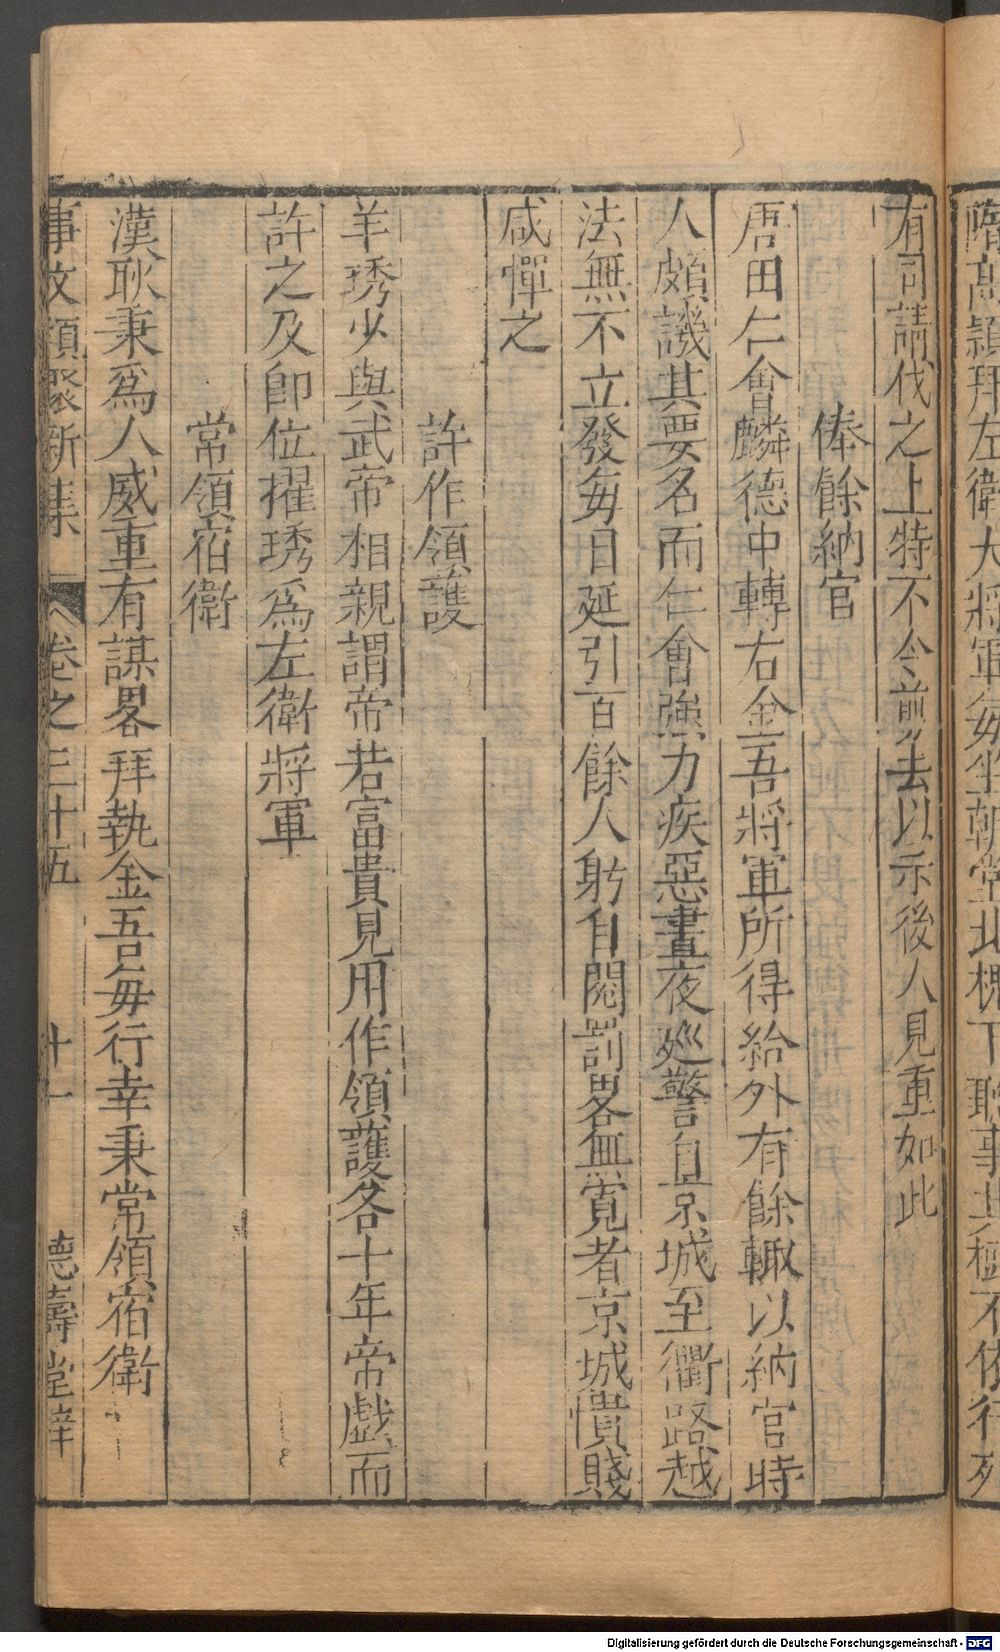 隋高熲拜左衛大將軍每坐朝堂北槐下聽事其樹不依行列
有司請伐之上特不令前去以示後人見重如此
俸餘納官
唐田仁會麟德中轉右金吾將軍所得給外有餘輙以納官時
人頗譏其要名而仁會強力疾惡晝夜廵警自京城至衢路越
法無不立發每日延引百餘人躬自閱罰畧無寛者京城貴賤
咸憚之
許作領護
羊琇少與武帝相親謂帝若富貴見用作領護各十年帝戲而
許之及即位擢琇爲左衛將軍
常領宿衛
漢耿秉爲人威重有謀畧拜執金吾每行幸秉常領宿衛
事文類聚新集 卷之三十五 十一 德壽堂梓
Digitalisierung gefördert durch die Deutsche Forschungsgemeinschaft - DFG